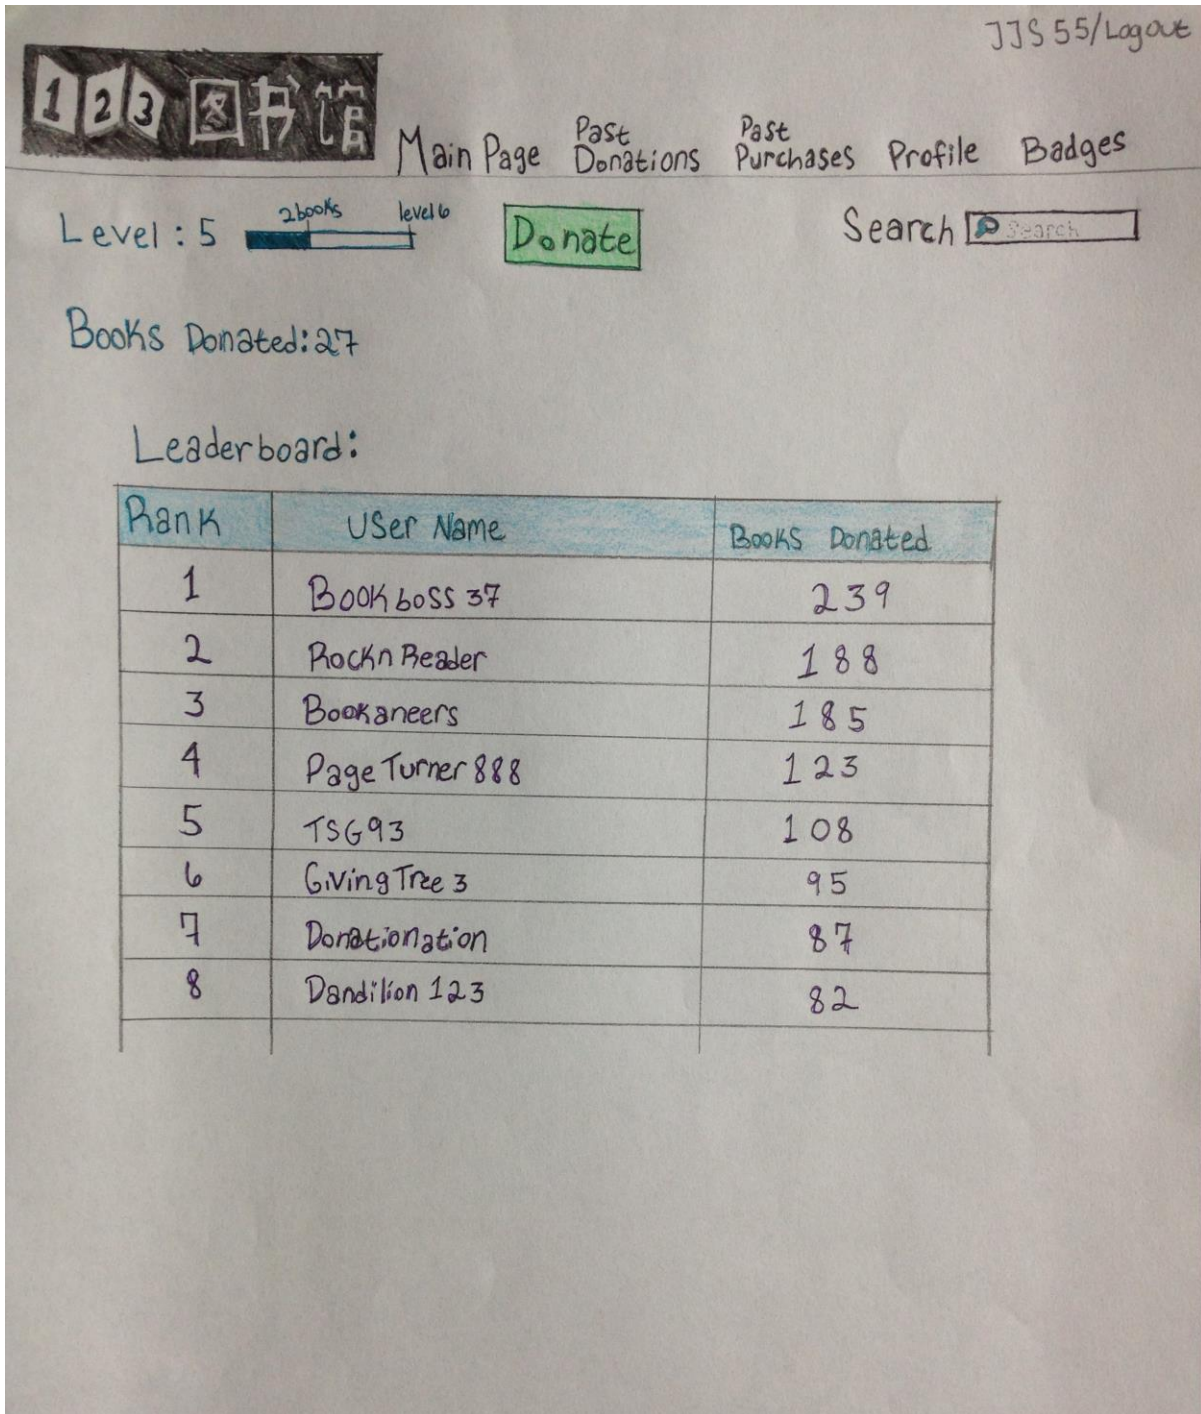 JJS55/Logout
123 图书馆
Main Page Past Donations Past Purchases Profile Badges
Level: 5 2books level6 Donate Search Search
Books Donated: 27
Leaderboard:
Rank User Name Books Donated
1 Bookboss37 239
2 RocknReader 188
3 Bookaneers 185
4 PageTurner888 123
5 TSG93 108
6 GivingTree3 95
7 Donationation 87
8 Dandilion123 82